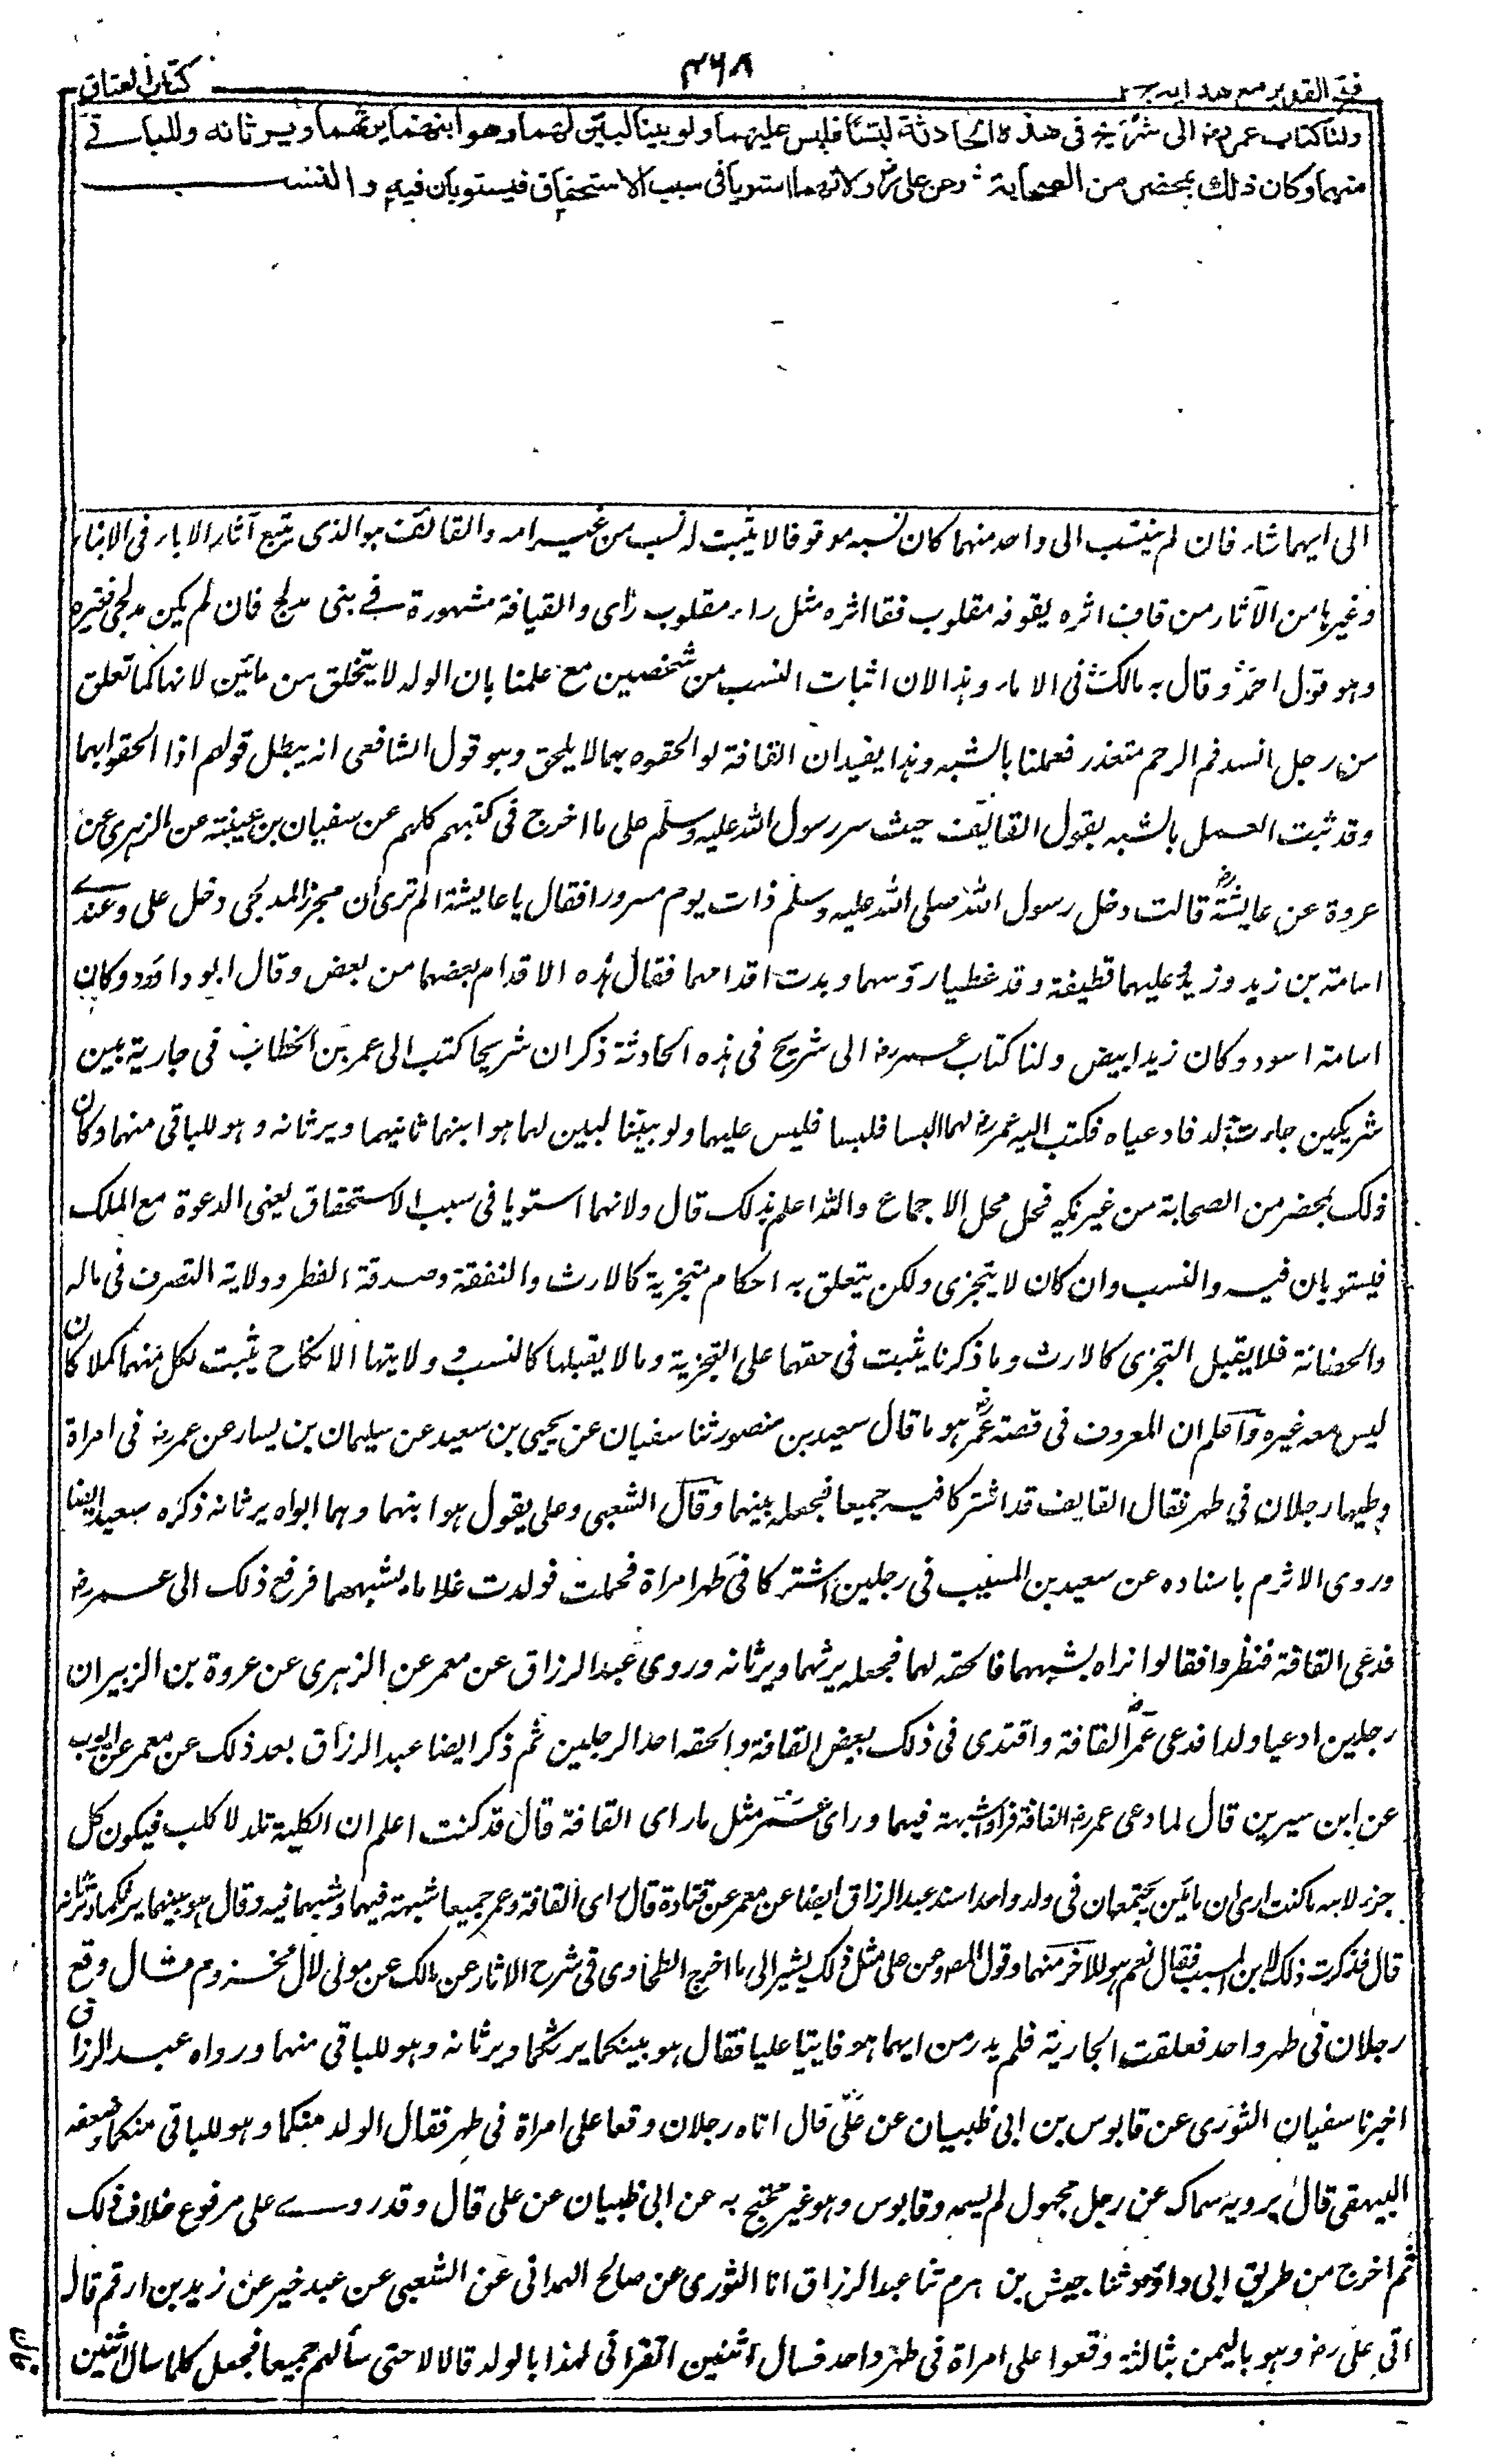 فتح القدير مع هدايه ج ٢
٣٦٨
كتاب العتاق
ولنا كتاب عمر رض الى شريح في هذه الحادثة لبسا فلبس عليهما ولو بينا لبين لهما وهو ابنهما يرثهما ويرثانه وللباقے
منهما وكان ذلك بمحضر من الصحابة وعن علي رض ولانهما استويا في سبب الاستحقاق فيستويان فيه والنســـب
الى ايهما شاء فان لم ينتسب الى واحد منهما كان نسبه موقوفا لا يثبت له نسب من غير امه والقائف هو الذى يتبع آثار الاباء فى الابناء
وغيرها من الآثار من قاف اثره يقوفه مقلوب قفا اثره مثل راء مقلوب رأى والقيافة مشهورة فے بنى مدلج فان لم يكن مدلجى فغيره
وهو قول احمد وقال به مالك فى الاماء وهذا لان اثبات النسب من شخصين مع علمنا بان الولد لا يتخلق من مائين لانها كما تعلق
من رجل انسد فم الرحم متعذر فعملنا بالشبه وهذا يفيد ان القافة لو الحقوه بهما لا يلحق وهو قول الشافعى انه يبطل قولهم اذا الحقوا بهما
وقد ثبت العمل بالشبه بقول القائف حيث سر رسول الله عليه وسلم على ما اخرج فى كتبهم كلهم عن سفيان بن عيينة عن الزهرى عن
عروة عن عايشة رض قالت دخل رسول الله صلى الله عليه وسلم ذات يوم مسرورا فقال يا عايشة الم ترى أن مجزز المدلجى دخل على وعندے
اسامة بن زيد وزيد عليهما قطيفة وقد غطيا رؤسهما وبدت اقدامهما فقال هذه الاقدام بعضها من بعض وقال ابو داؤد وكان
اسامة اسود وكان زيد ابيض ولنا كتاب عمر رض الى شريح فى هذه الحادثة ذكر ان شريحا كتب الى عمر بن الخطاب فى جارية بين
شريكين جاءت بولد فادعياه فكتب اليه عمر رض انهما لبسا فلبسا فلبس عليهما ولو بينا لبين لهما هو ابنهما يرثهما ويرثانه وهو للباقى منهما وكان
ذلك بمحضر من الصحابة من غير نكير فحل محل الاجماع والله اعلم بذلك قال ولانهما استويا فى سبب الاستحقاق يعنى الدعوة مع الملك
فيستويان فيه والنسب وان كان لا يتجزى ولكن يتعلق به احكام متجزية كالارث والنفقة وصدقة الفطر وولاية التصرف فى ماله
والحضانة فلا يقبل التجزى كالارث وما ذكرنا يثبت فى حقهما على التجزية وما لا يقبلها كالنسب وولايتها الانكاح يثبت لكل منهما كملا كان
ليس معه غيره واعلم ان المعروف فى قصة عمر رض هو ما قال سعيد بن منصور ثنا سفيان عن يحيى بن سعيد عن سليمان بن يسار عن عمر رض فى امراة
وطيها رجلان فى طهر فقال القايف قد اشتركا فيه جميعا فجعله بينهما وقال الشعبى وعلى يقول هو ابنهما وهما ابواه يرثانه ذكره سعيد ايضا
وروى الاثرم باسناده عن سعيد بن المسيب فى رجلين اشتركا فى طهر امراة فحملت فولدت غلاما يشبههما فرفع ذلك الى عمر رض
فدعى القافة فنظروا فقالوا نراه يشبههما فالحقه لهما فجعله يرثهما ويرثانه وروى عبد الرزاق عن معمر عن الزهرى عن عروة بن الزبير ان
رجلين ادعيا ولدا فدعى عمر رض القافة واقتدى فى ذلك ببعض القافة والحقه احد الرجلين ثم ذكر ايضا عبد الرزاق بعد ذلك عن معمر عن ايوب
عن ابن سيرين قال لما دعى عمر رض القافة فراوا شبهه فيهما وراى عمر مثل ما راى القافة قال قد كنت اعلم ان الكلبة تلد لاكلب فيكون كل
جرو لابيه ما كنت ارى ان مائين يجتمعان فى ولد واحد اسند عبد الرزاق ايضا عن معمر عن قتادة قال راى القافة وعمر جميعا شبهه فيهما وشبههما فيه وقال هو بينهما يرثكما وترثانه
قال فذكرت ذلك لابن المسيب فقال نعم هو للآخر منهما وقول المصوعن على مثل ذلك يشير الى ما اخرج الطحاوى فى شرح الاثار عن مالك عن مولى لال مخزوم قال وقع
رجلان فى طهر واحد فعلقت الجارية فلم يدر من ايهما هو فاتيا عليا فقال هو بينكما يرثكما ويرثانه وهو للباقى منهما ورواه عبد الرزاق
اخبرنا سفيان الثورى عن قابوس بن ابى ظبيان عن على قال اتاه رجلان وقعا على امراة فى طهر فقال الولد منكما وهو للباقى منكما وضعفه
البيهقى قال يرويه سماك عن رجل مجهول لم يسمه وقابوس وهو غير محتج به عن ابى ظبيان عن على قال وقد روے على مرفوع خلاف ذلك
ثم اخرج من طريق ابى داؤد ثنا حبيش بن اهرم ثنا عبد الرزاق انا الثورى عن صالح الهمدانى عن الشعبى عن عبد خير عن زيد بن ارقم قال
اتى على رض وهو باليمن بثالثة وقعوا على امراة فى طهر واحد فسال اثنين اتقران لهذا بالولد قالا لا حتى سألهم جميعا فجعل كلما سال اثنين
قال